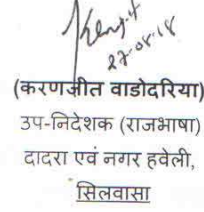 27-08-18
(करणजीत वाडोदरिया)
उप-निदेशक (राजभाषा)
दादरा एवं नगर हवेली,
सिलवासा